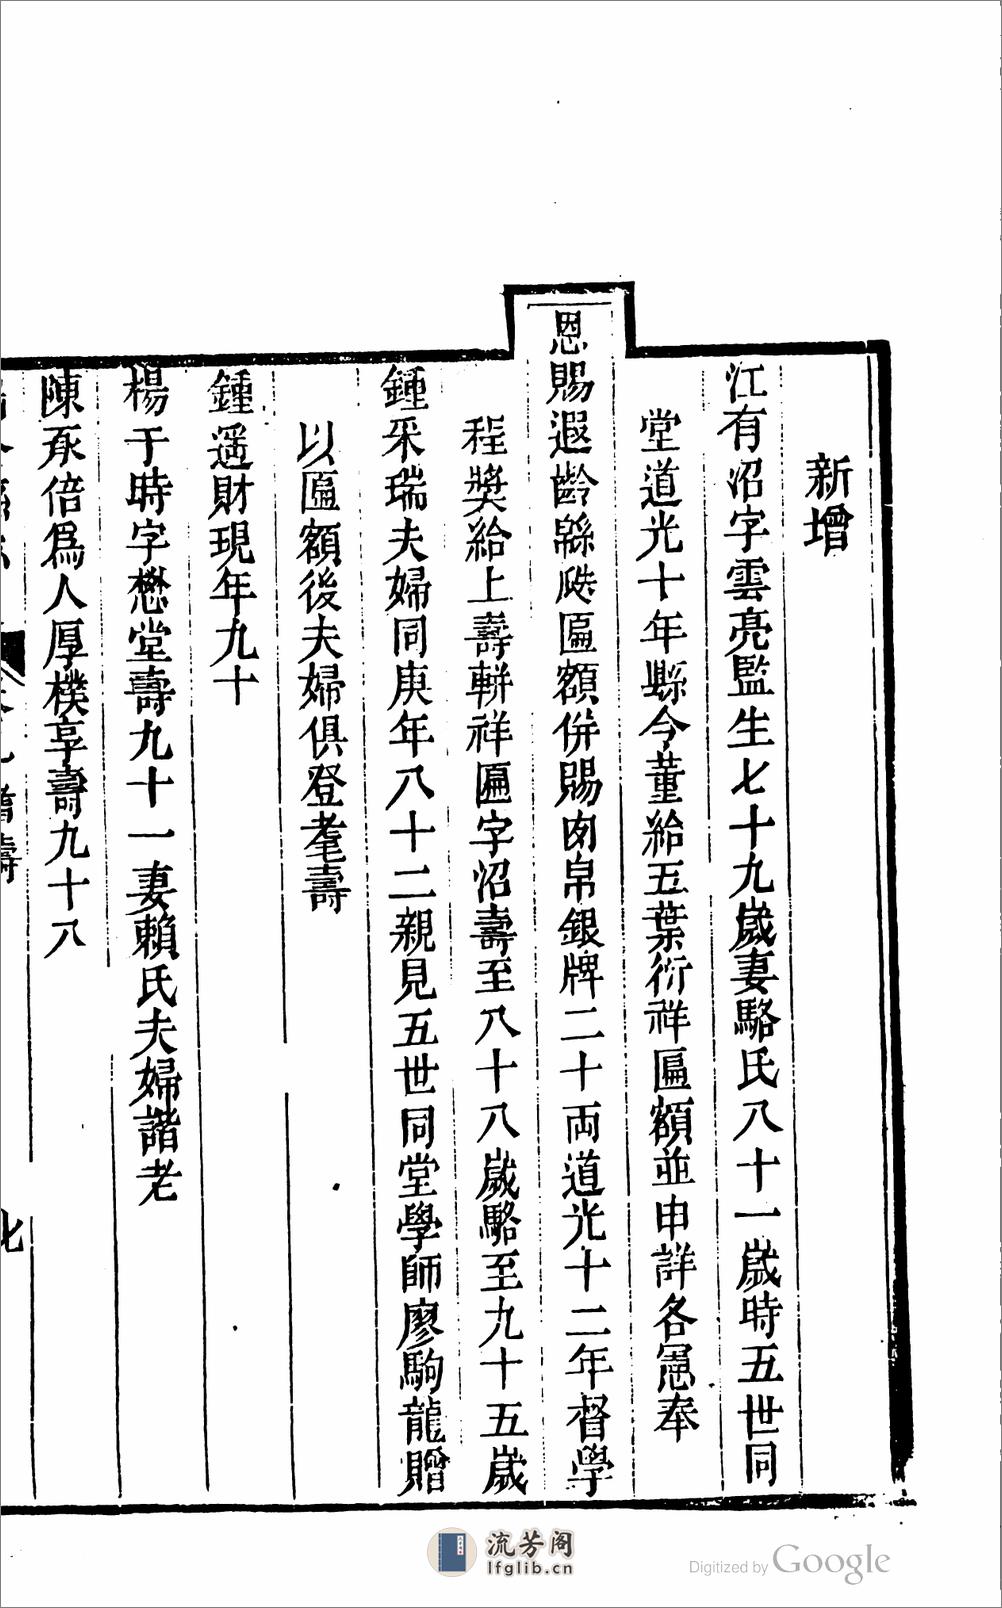 新增
江有沼字雲亮監生七十九歲妻駱氏八十一歲時五世同
堂道光十年縣令董給五葉衍祥匾額並申詳各憲奉
恩賜遐齡緜瓞匾額併賜肉帛銀牌二十両道光十二年督學
程奬給上壽軿祥匾字沼壽至八十八歲駱至九十五歲
鍾采瑞夫婦同庚年八十二親見五世同堂學師廖駒龍贈
以匾額後夫婦俱登耄壽
鍾遥財現年九十
楊于時字懋堂壽九十一妻賴氏夫婦諧老
陳承倍爲人厚樸享壽九十八
流芳阁
lfglib.cn
Digitized by Google